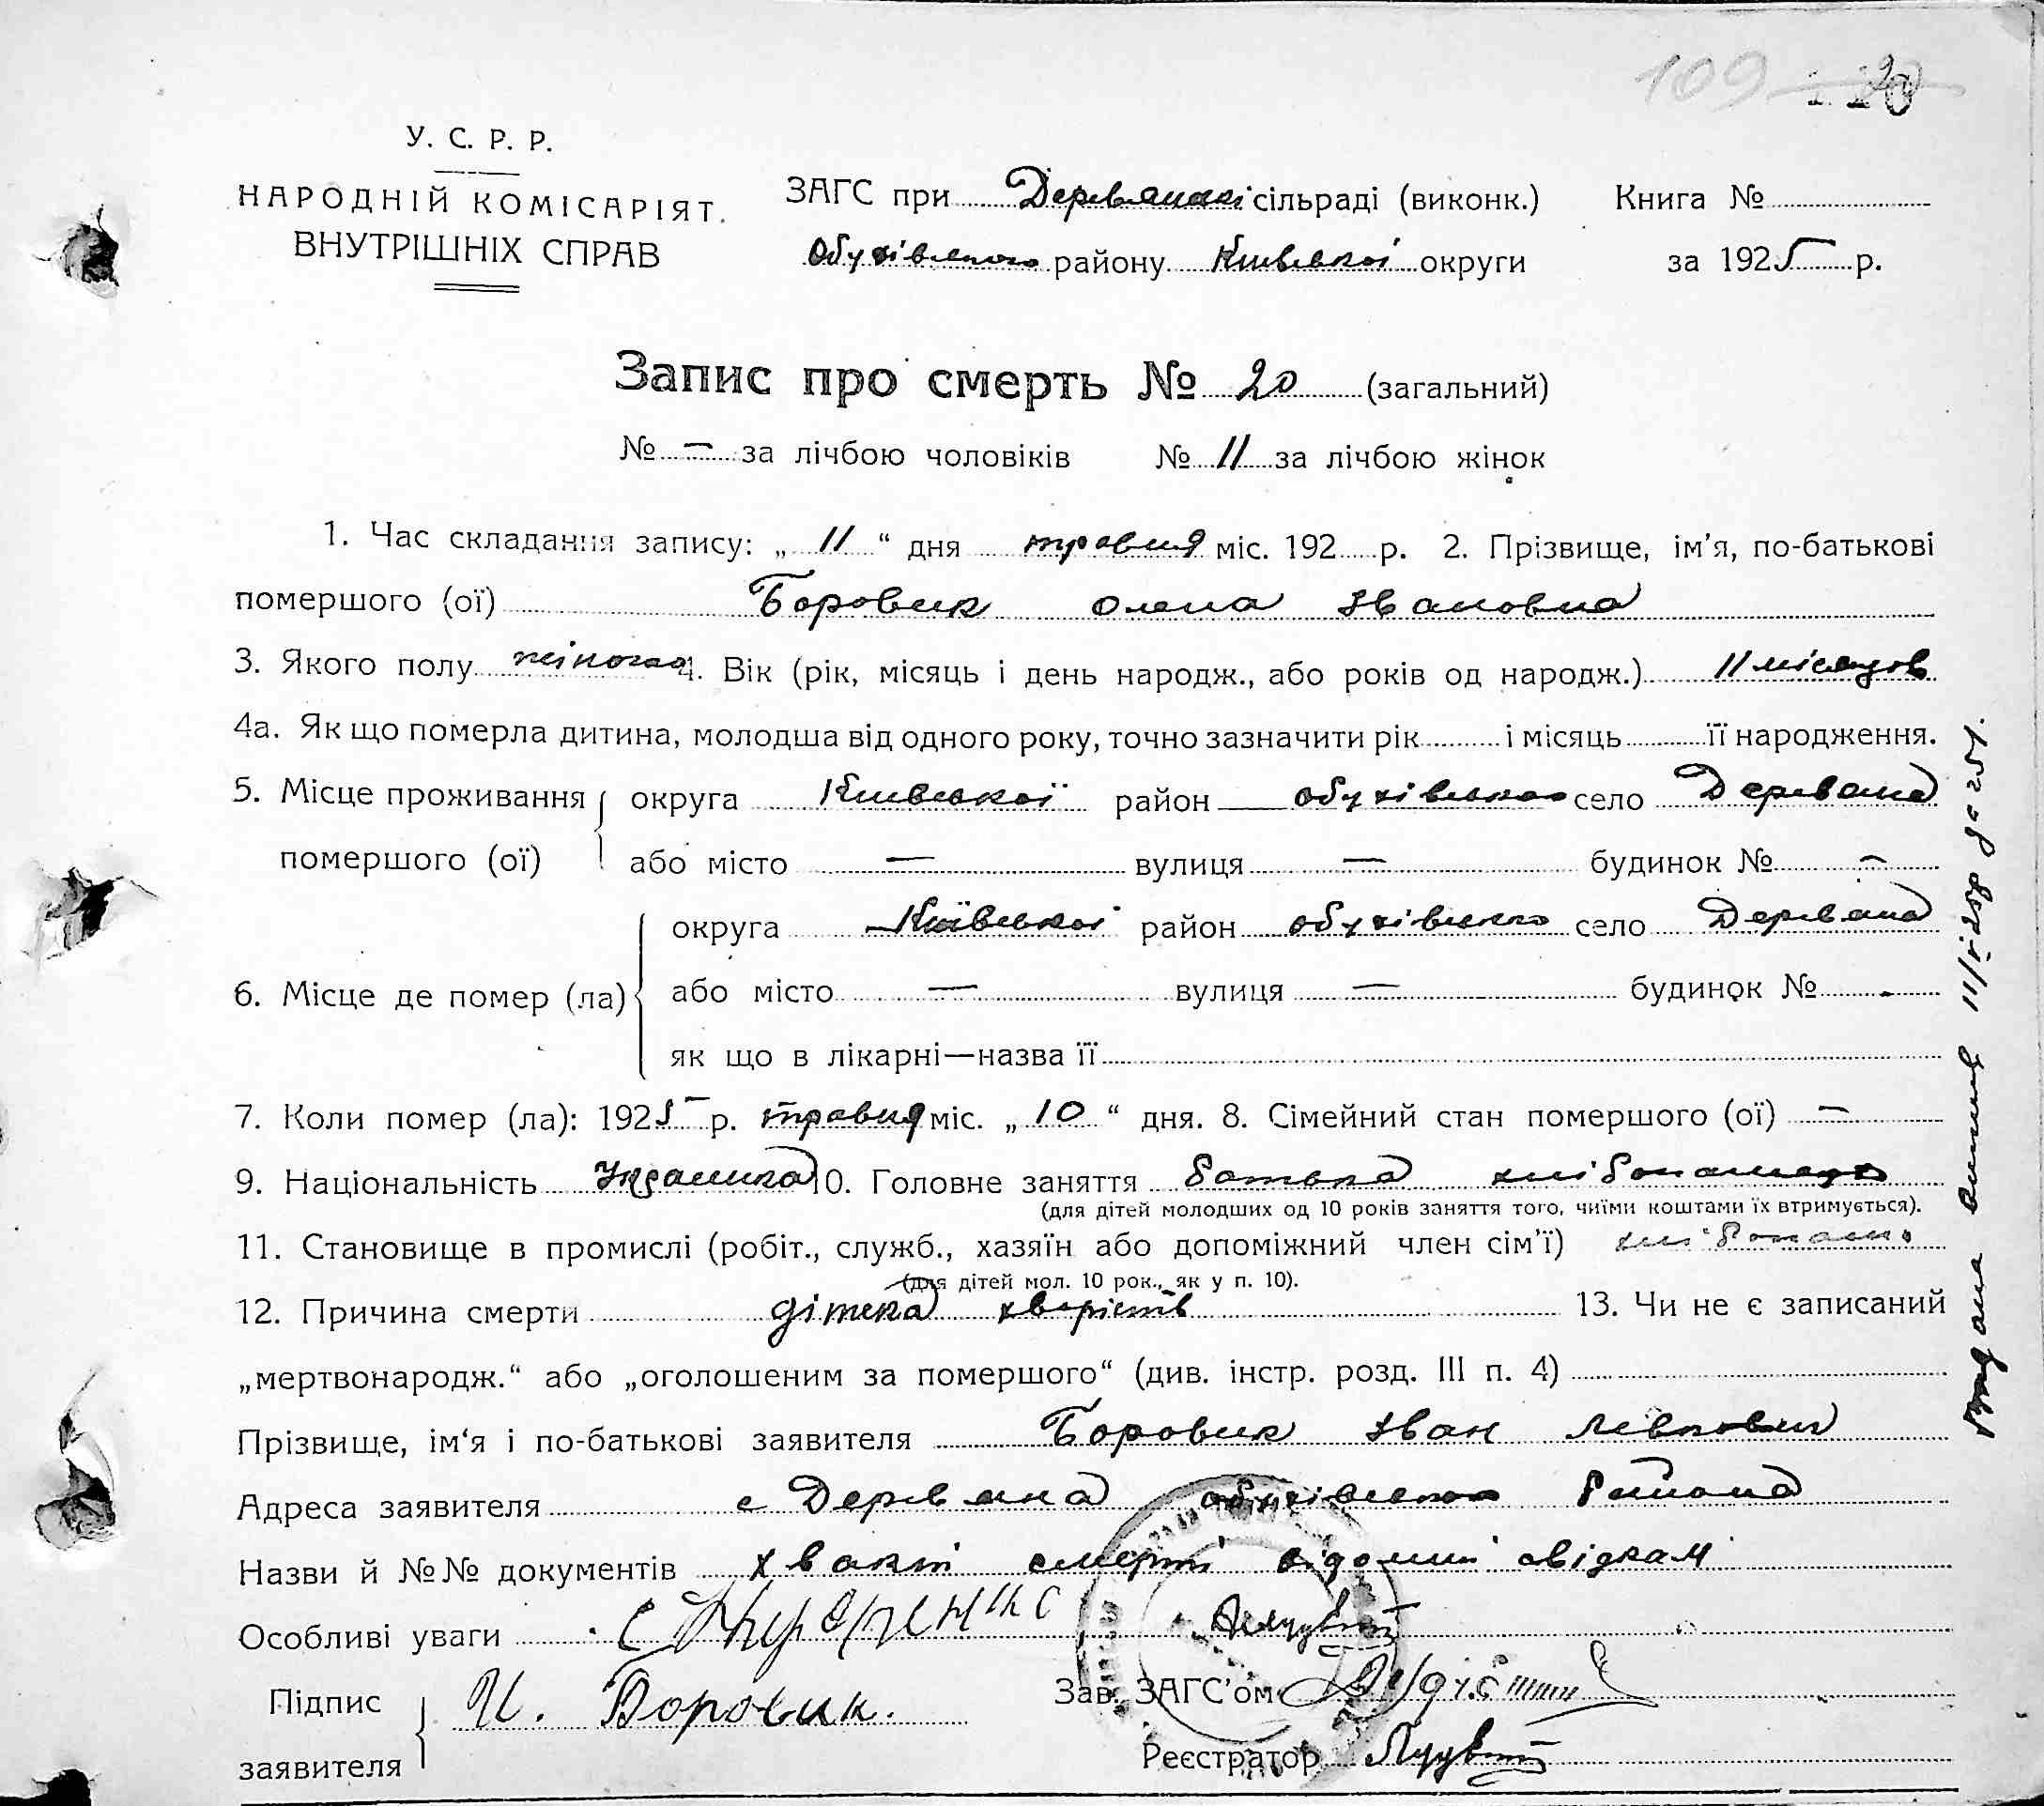 109
У. С. Р. Р.
НАРОДНІЙ КОМІСАРІЯТ
ВНУТРІШНІХ СПРАВ
ЗАГС при Деревянскі сільраді (виконк.) Книга №
Обухівського району Київської округи за 1925 р.
Запис про смерть № 20 (загальний)
№ — за лічбою чоловіків № 11 за лічбою жінок
1. Час складання запису: „ 11 “ дня травня міс. 192 р. 2. Прізвище, ім'я, по-батькові
помершого (ої) Боровик Олена Івановна
3. Якого полу жіного 4. Вік (рік, місяць і день народж., або років од народж.) 11 місяцов
4а. Як що померла дитина, молодша від одного року, точно зазначити рік і місяць її народження.
5. Місце проживання округа Київської район обухівського село Деревяна
помершого (ої) або місто — вулиця — будинок № —
округа Київської район обухівського село Деревяна
6. Місце де помер (ла) або місто — вулиця — будинок № -
як що в лікарні—назва її
7. Коли помер (ла): 1925 р. травня міс. „ 10 “ дня. 8. Сімейний стан помершого (ої) —
9. Національність Украинка 10. Головне заняття батька хлібопашець
(для дітей молодших од 10 років заняття того, чиїми коштами їх втримується).
11. Становище в промислі (робіт., служб., хазяїн або допоміжний член сім'ї) хлібопашь
(для дітей мол. 10 рок., як у п. 10).
12. Причина смерти дітска хворість 13. Чи не є записаний
„мертвонародж.“ або „оголошеним за помершого“ (див. інстр. розд. III п. 4)
Прізвище, ім'я і по-батькові заявителя Боровик Іван Левкович
Адреса заявителя с Деревяна обухівського района
Назви й №№ документів хвакт смерті відомий свідкам
Особливі уваги
Підпис И. Боровик. Зав. ЗАГС'ом
заявителя Реєстратор